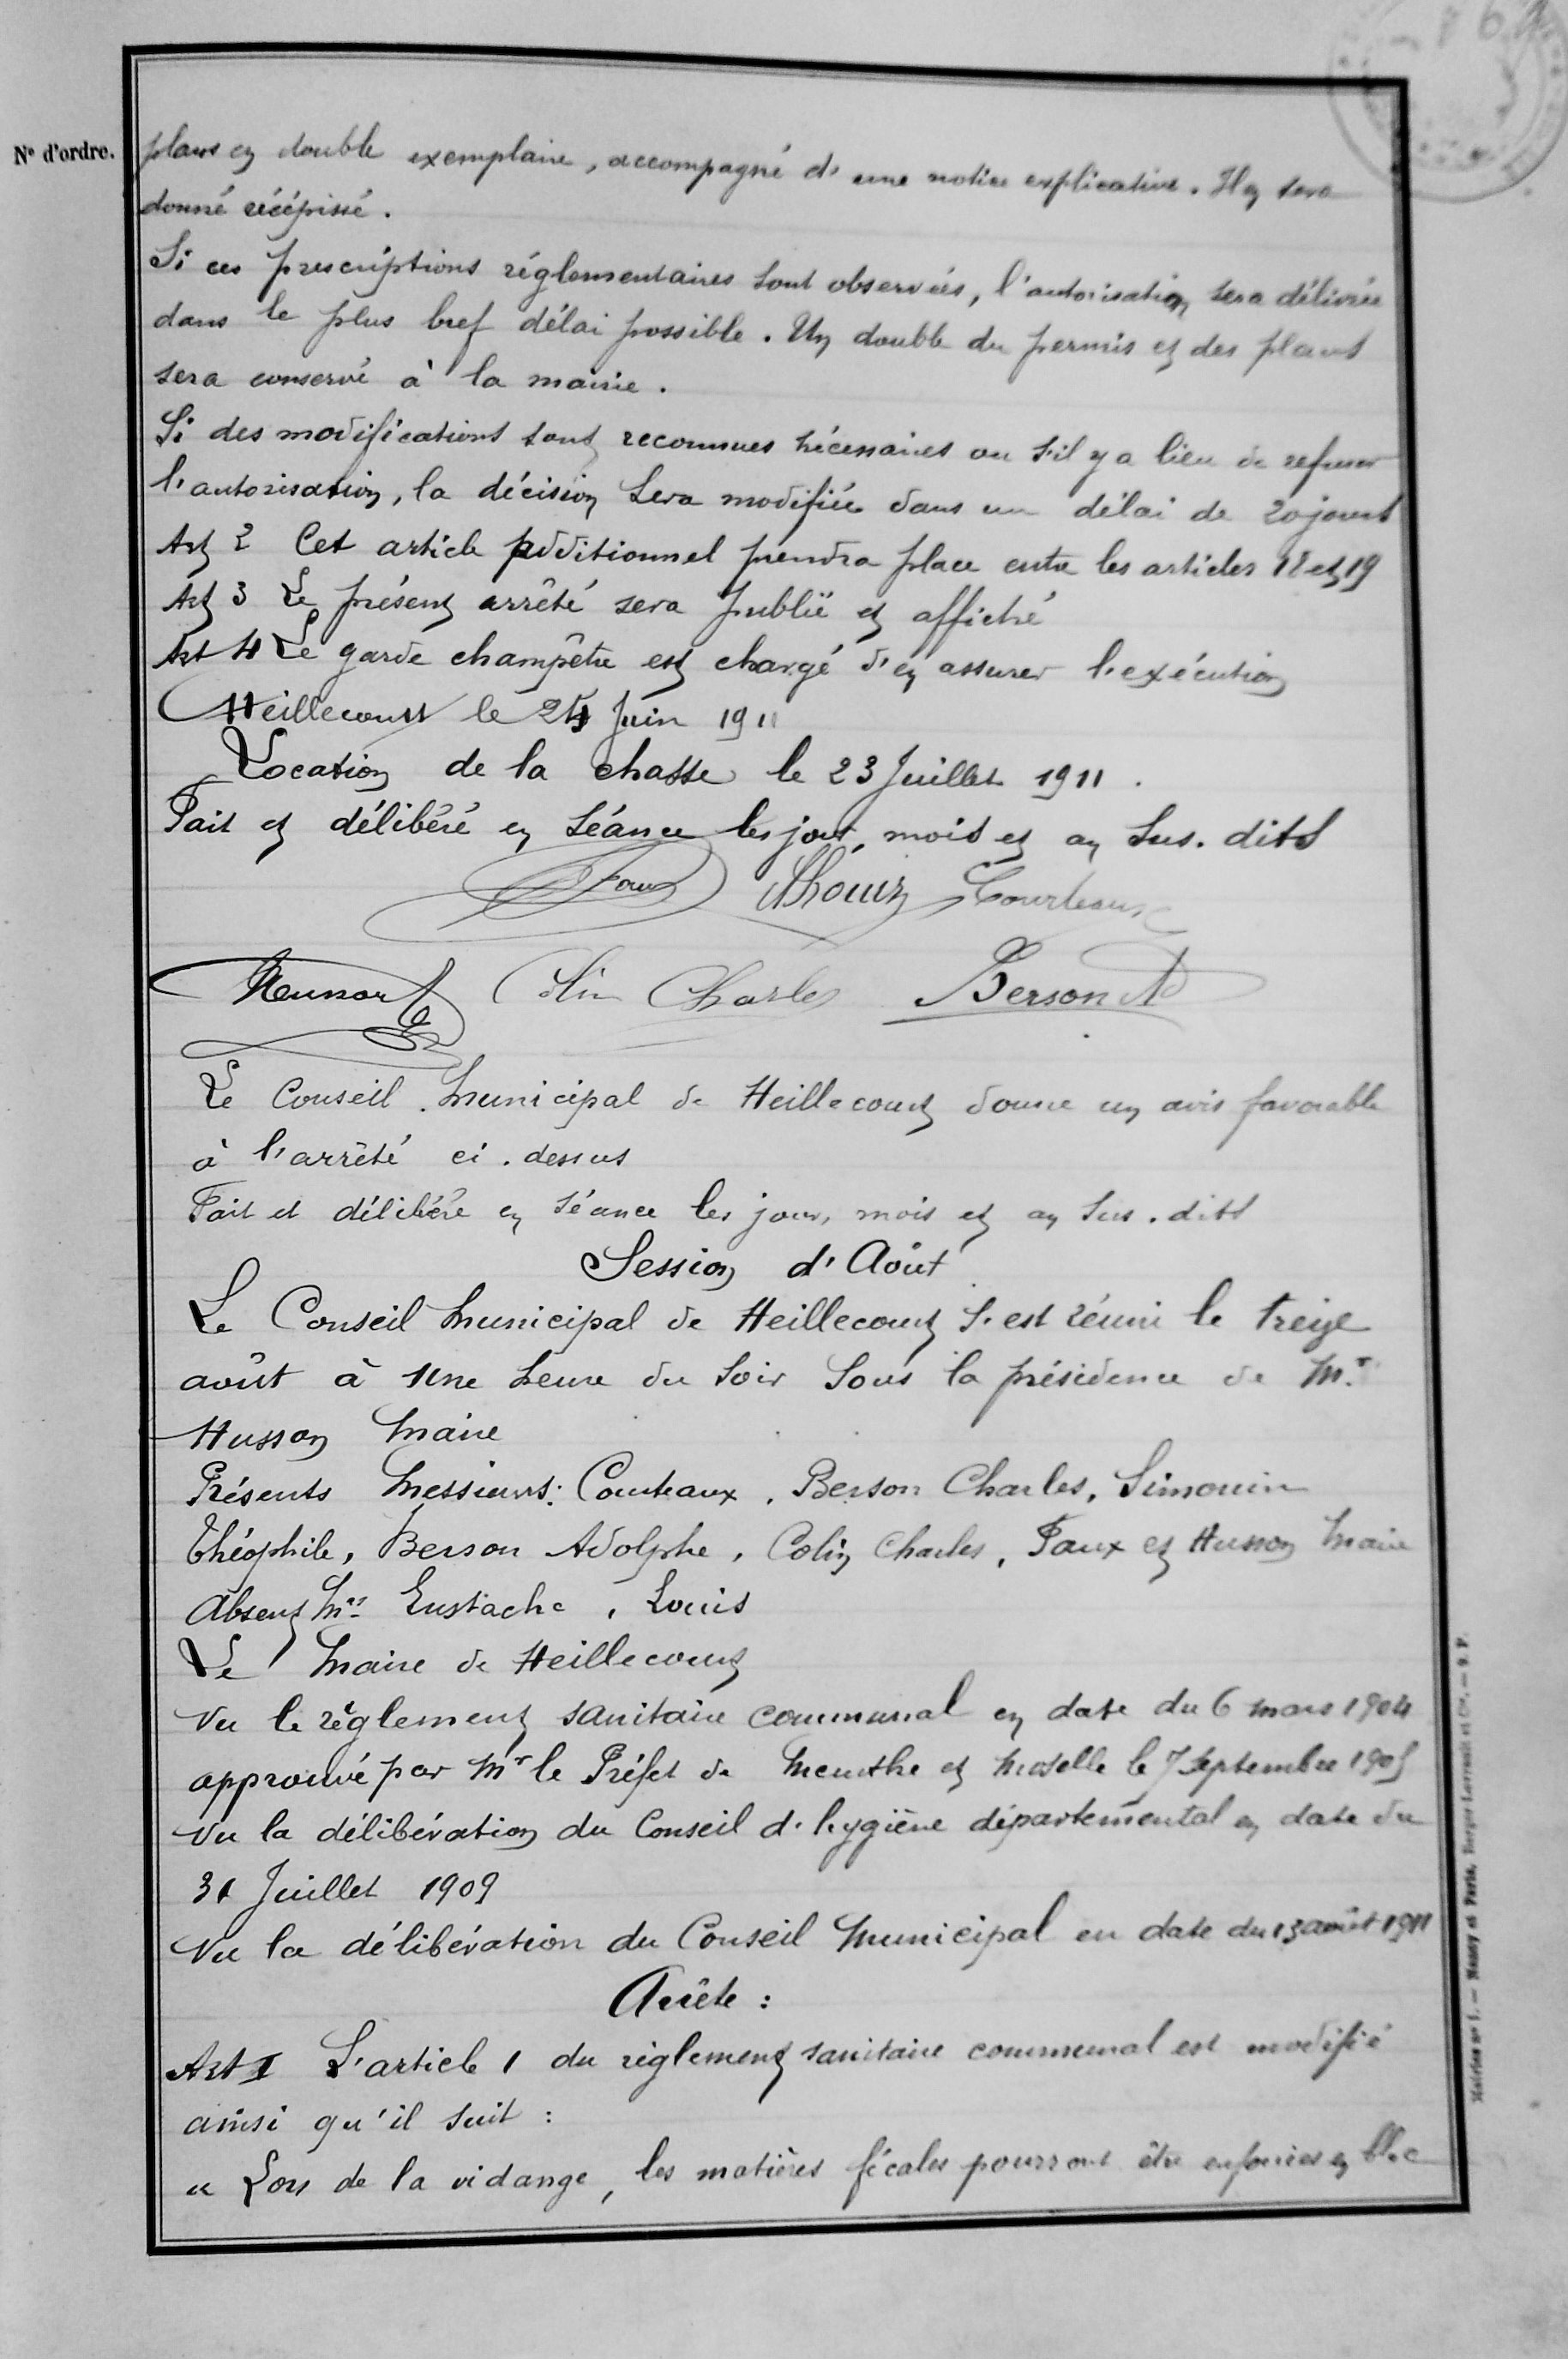 N° d'ordre.
plans en double exemplaire, accompagné d'une notice explicative. Il en sera
donné récépissé.
Si ces prescriptions réglementaires sont observées, l'autorisation sera délivrée
dans le plus bref délai possible. Un double du permis et des plans
sera conservé à la mairie.
Si des modifications sont reconnues nécessaires ou s'il y a lieu de refuser
l'autorisation, la décision sera modifiée dans un délai de 20 jours
Art 2 Cet article additionnel prendra place entre les articles 18 et 19
Art 3 Le présent arrêté sera publié et affiché
Art 4 Le garde champêtre est chargé d'en assurer l'exécution
Heillecourt le 24 Juin 1911
Location de la chasse le 23 Juillet 1911.
Fait et délibéré en séance les jour, mois et an sus.dits
Faux Courteaux
Colin Charles Berson Ad
Le Conseil Municipal de Heillecourt donne un avis favorable
à l'arrêté ci.dessus
Fait et délibéré en séance les jour, mois et an sus.dits
Session d'Août
Le Conseil Municipal de Heillecourt s'est réuni le treize
août à une heure du soir sous la présidence de Mr
Husson Maire
Présents Messieurs: Courteaux, Berson Charles, Simonin
Théophile, Berson Adolphe, Colin Charles, Faux et Husson Maire
Absent Mrs Eustache, Louis
Le Maire de Heillecourt
Vu le règlement sanitaire communal en date du 6 mars 1904
approuvé par Mr le Préfet de Meurthe et Moselle le 7 Septembre 1905
Vu la délibération du Conseil d'hygiène départemental en date du
31 Juillet 1909
Vu la délibération du Conseil Municipal en date du 13 août 1911
Arrête :
Art I L'article 1 du règlement sanitaire communal est modifié
ainsi qu'il suit :
« Lors de la vidange, les matières fécales pourront être enfouies en bloc